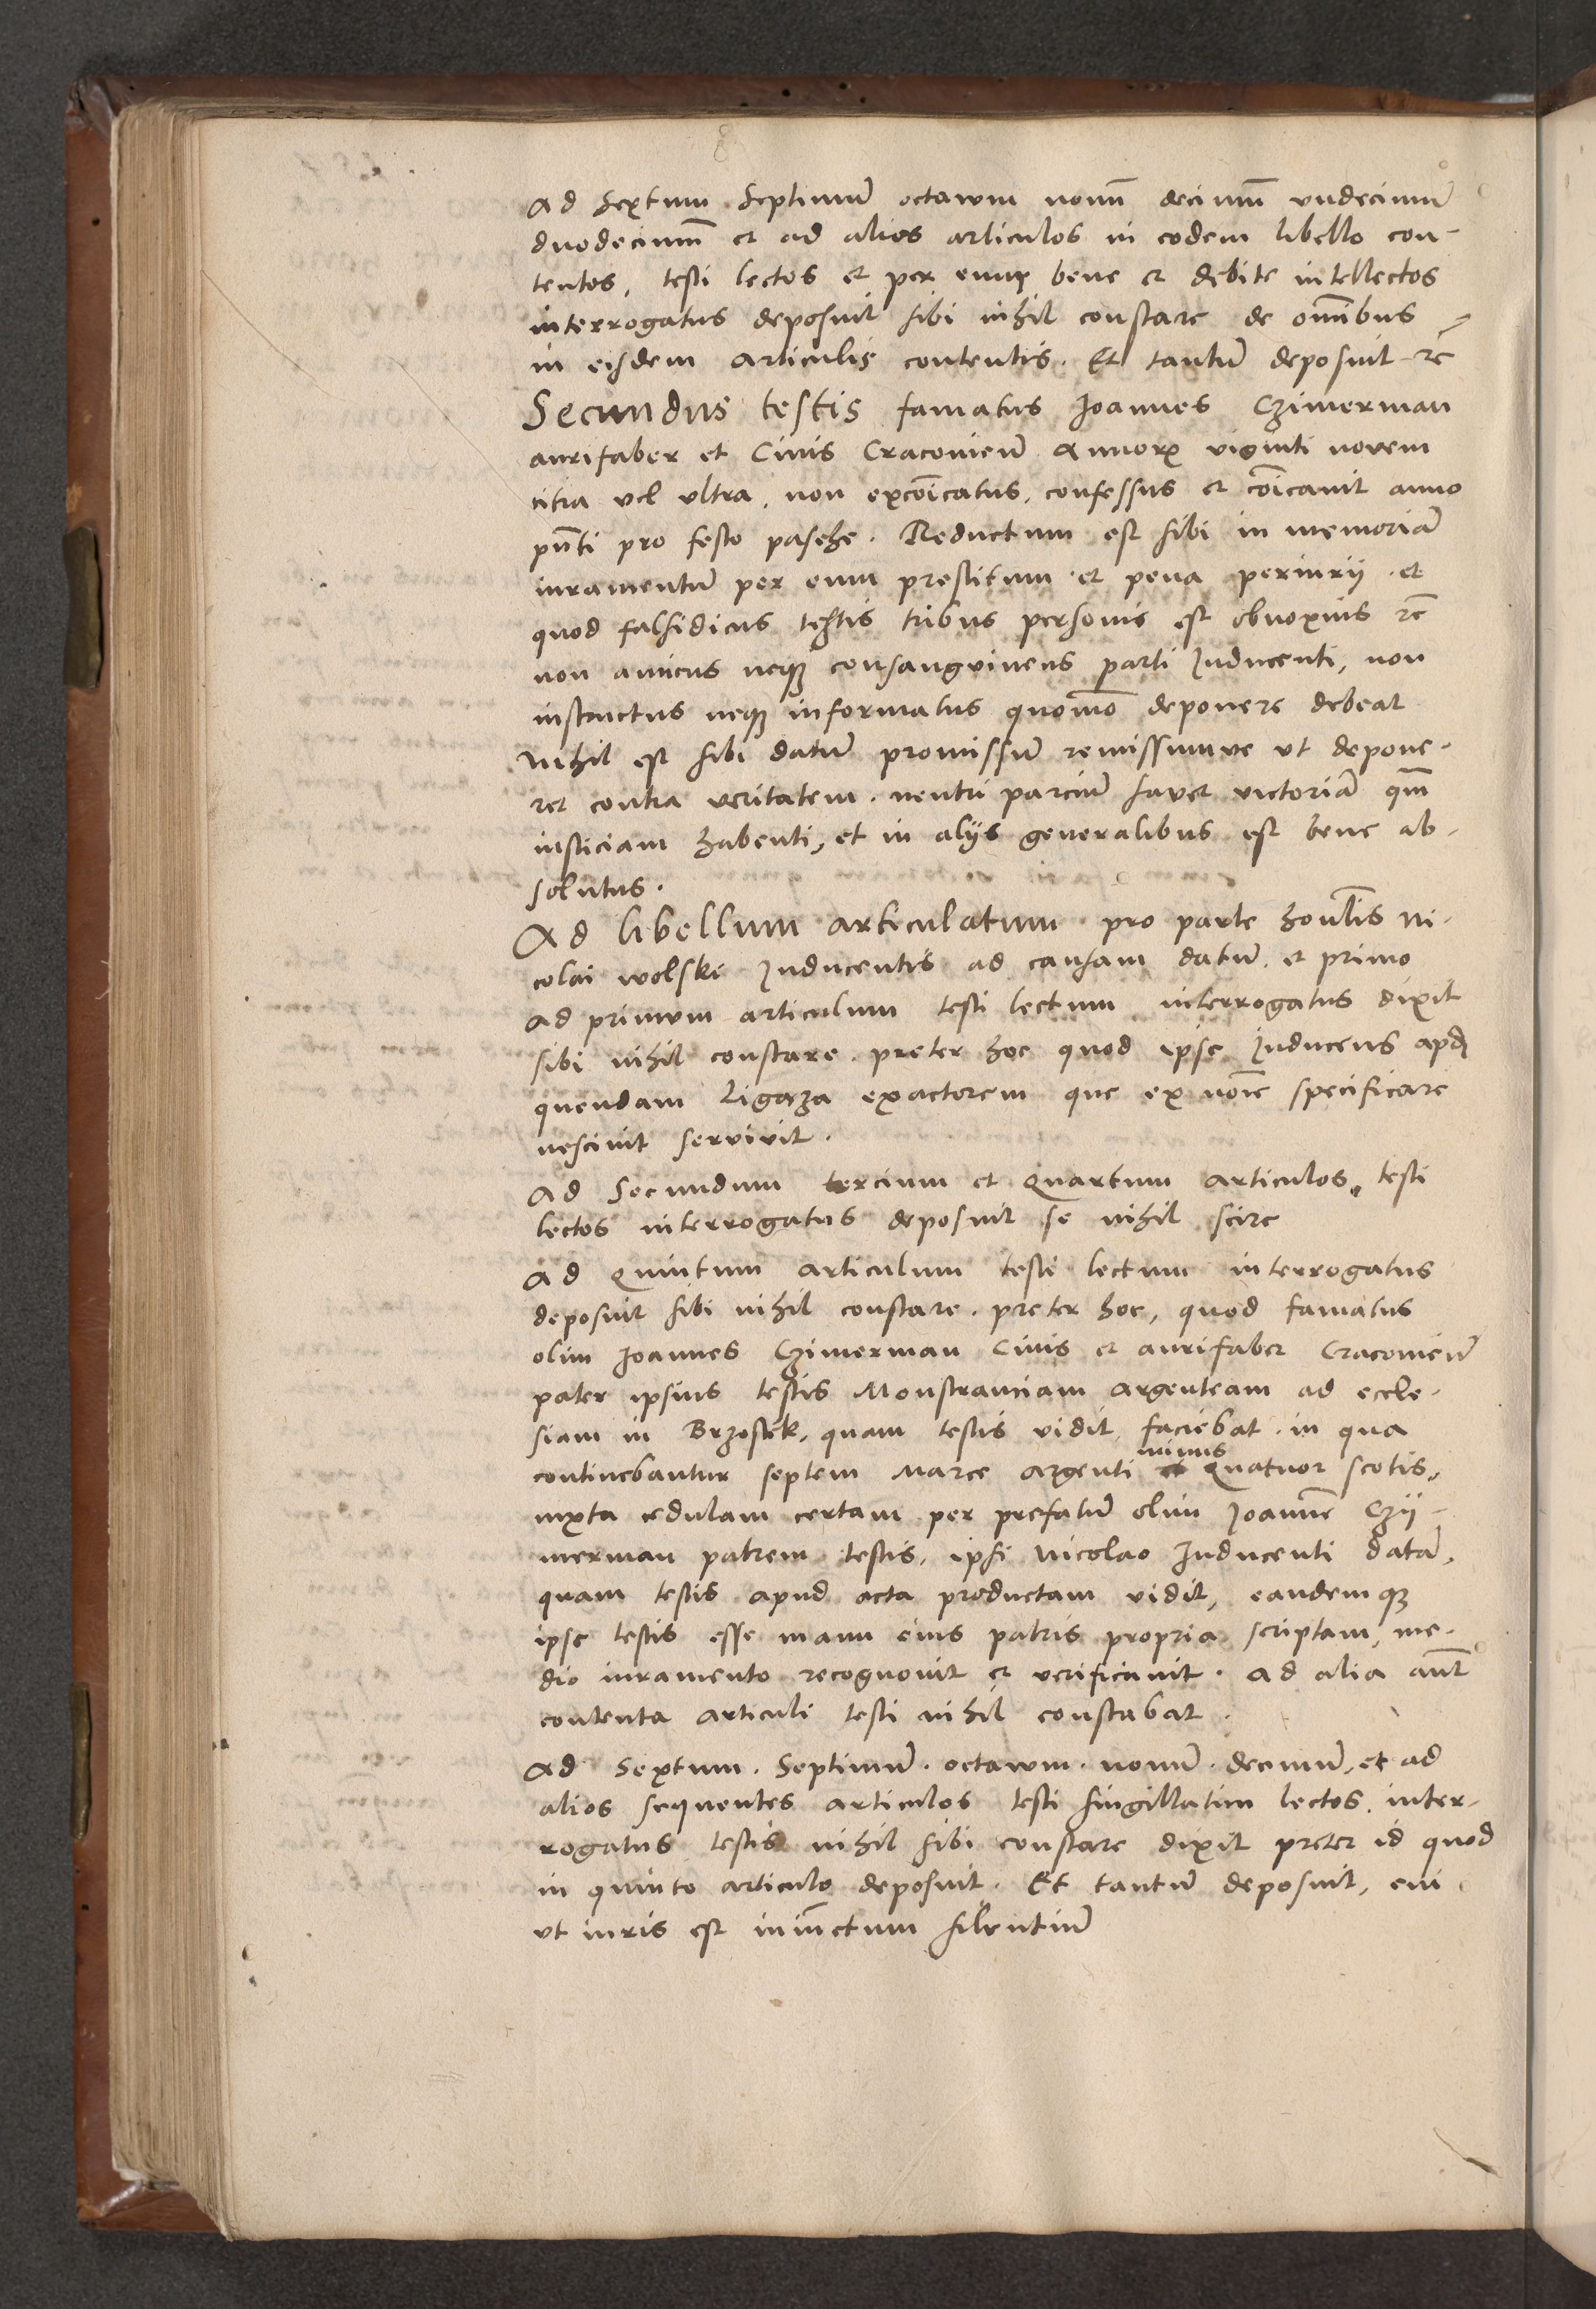 Ad Sextum Septimū octawm nonū decimū vndecimū
duodecimū et ad alios articulos in eodem libello con-
tentos, testi lectos et per eum bene et debite intellectos
interrogatus deposuit sibi nihil constare de oīnibus
in eisdem articulis contentis. Et tantū deposuit rc̄
Secundus testis famatus Joannes Czimerman
aurifaber et Civis Cracovieū Annorꝝ viginti novem
citra vel vltra, non excōicatus, confessus et cōicavit anno
pn̄ti pro festo pasche. Reductum est sibi in memoriā
iuramentū per eum prestitum et pena periurij et
quod falsidicus testis tribus personis est obnoxius rc̄
non amicus neqꝫ consangvineus parti Inducenti, non
instructus neqꝫ informatus quomō deponere debeat
Nihil est sibi datū promissū remissumve vt depone-
ret contra veritatem. neutri parciū favet victoriā qm̄
iusticiam habenti, et in alijs generalibus est bene ab-
solutus.
Ad libellum articulatum pro parte honl̄is Ni-
colai Wolski Inducentis ad causam datū et primo
Ad primum articulum testi lectum interrogatus dixit
sibi nihil constare preter hoc quod ipse Inducens apd
quendam Ligaza exactorem que ex noīe specificare
nescivit servivit.
Ad Secundum tercium et Quartum articulos, testi
lectos interrogatus deposuit se nihil scire
Ad Quintum articulum testi lectum interrogatus
deposuit sibi nihil constare. preter hoc, quod famatus
olim Joannes Czimerman Civis et aurifaber Cracovieū
pater ipsius testis Monstranciam argenteam ad eccle-
siam in Brzostek, quam testis vidit, faciebat. in qua
minus
continebantur septem Marce argenti et Quatuor scotis,
iuxta cedulam certam per prefatū olim Joannē Czij-
merman patrem testis, ipsi Nicolao Inducenti datā,
quam testis apud acta productam vidit, eandemqꝫ
ipse testis esse manu eius patris propria scriptam, me-
dio iuramento recognovit et verificavit. Ad alia aūt
contenta articuli testi nihil constabat.
Ad Sextum. Septimū. octawm. nonū. decimū, et ad
alios sequentes articulos testi singillatim lectos, inter-
rogatus testis nihil sibi constare dixit preter id quod
in quinto articulo deposuit. Et tantū deposuit, cui
vt iuris est iniūctum silentiū